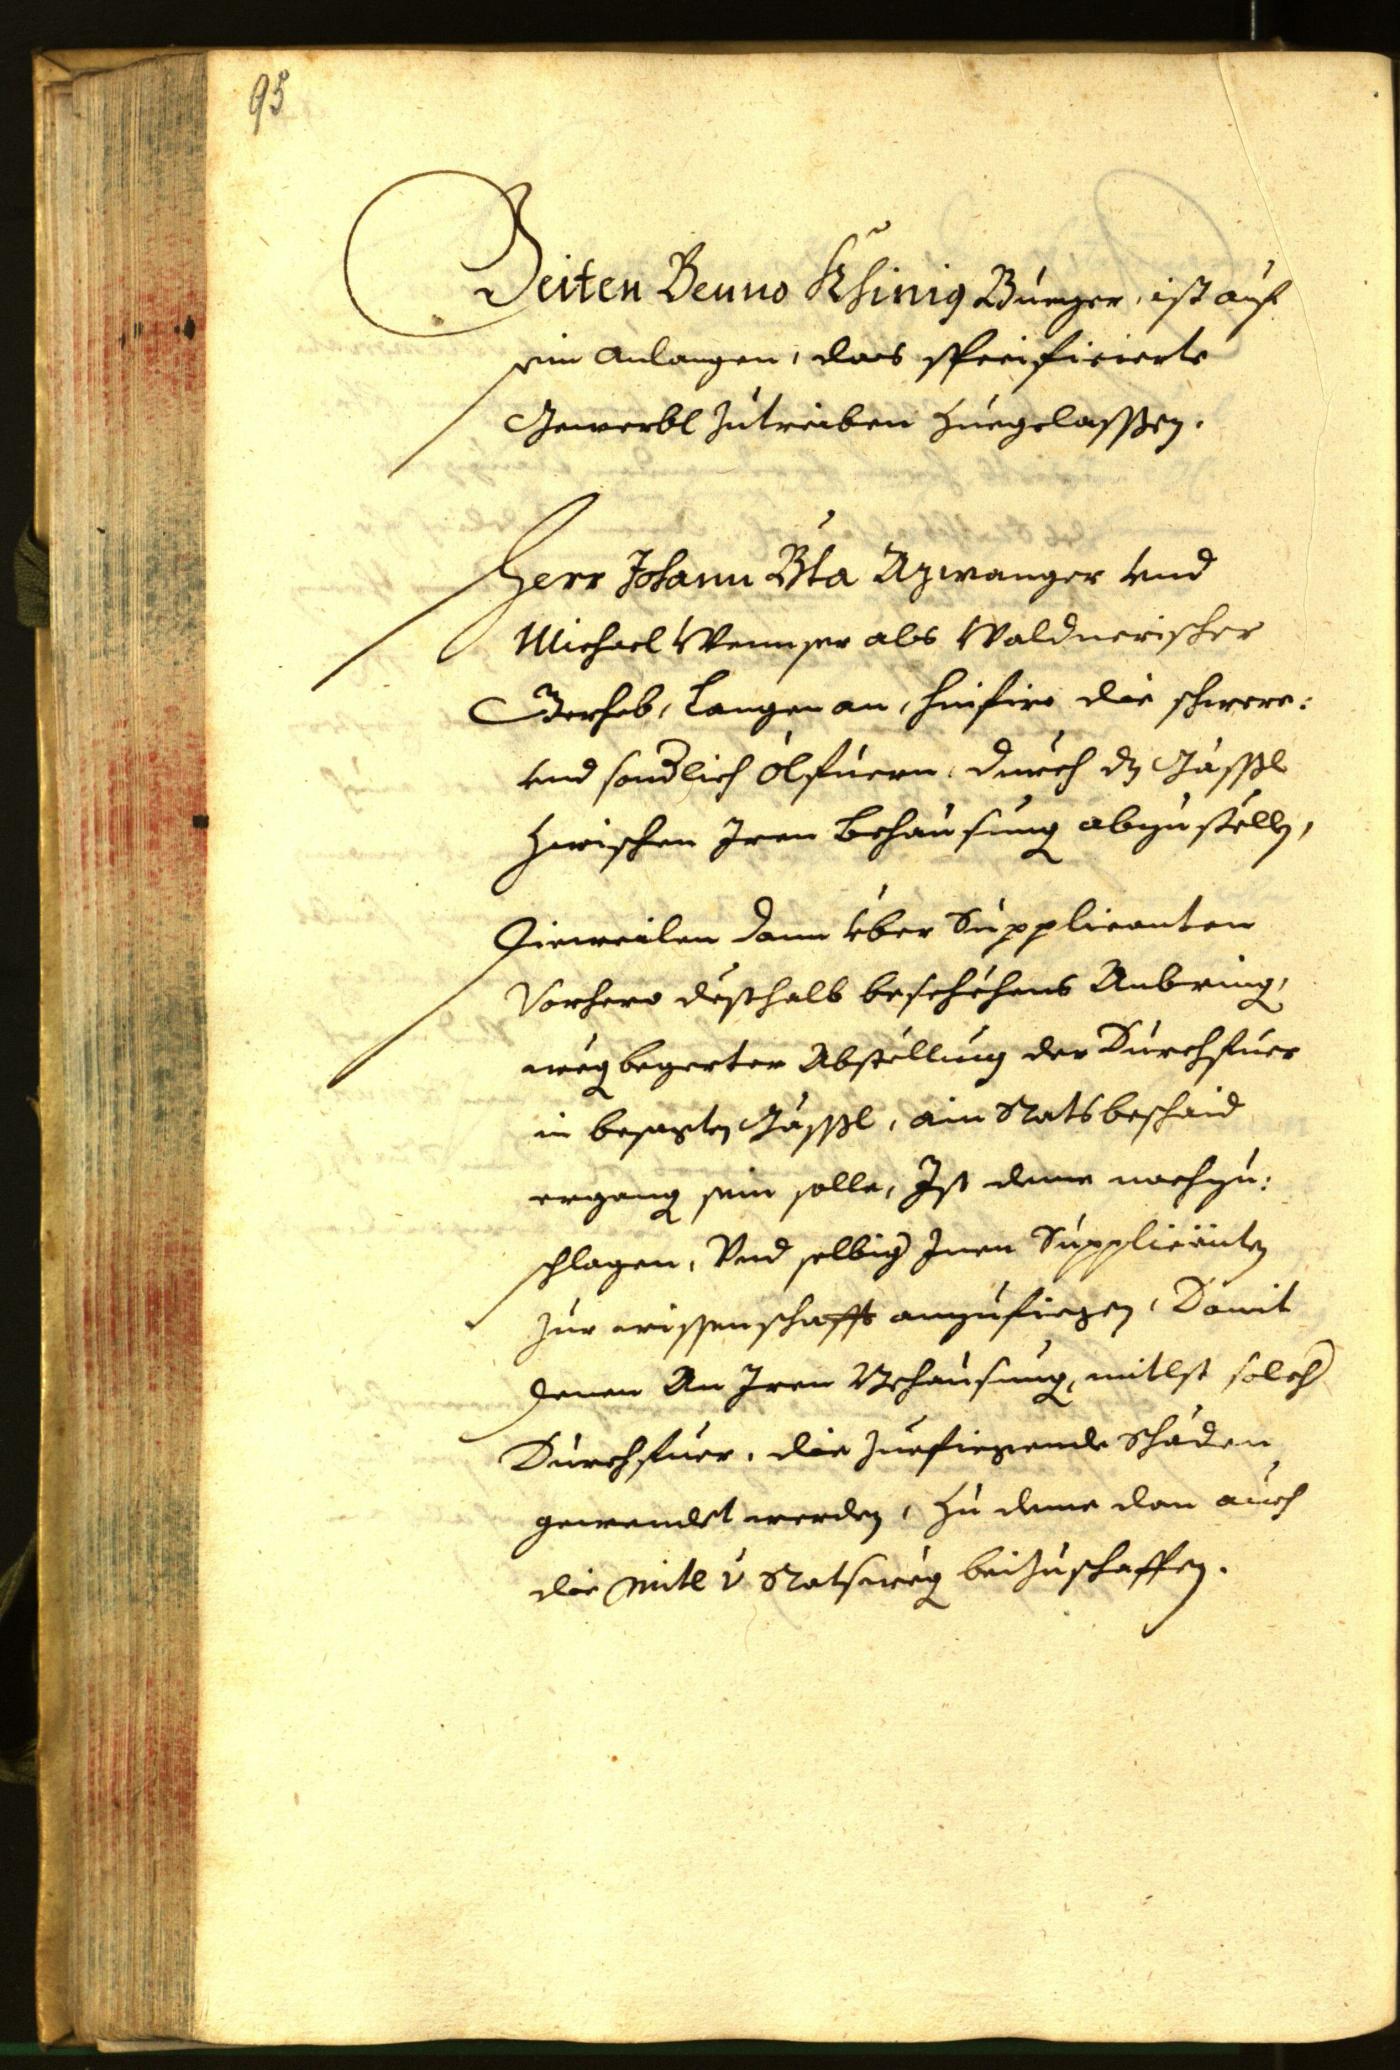 95
Zeiten Benno Khinig Burger, ist auf
sein Anlangen, das specificierte
Gewerbl zutreiben zuegelassen.
Herr Johann Bta Azwanger vnd
Michael Wennser als Waldnerischer
Gerhab, Langen an, hinfiro die schwere:
vnd sondlich Ölfueren, durch dz Gässl
zwischen Iren Behausung abzustelln,
Dieweilen dann über Supplicanten
Vorhero desthalb beschehens Anbring,
weg begerter Abstellung der Durchfuer
in besagten Gässl, ain Ratsbeschaid
ergang sein solle, Ist deme nachzu:
schlagen, Vnd selbig Inen Supplicanten
zur wissenschafft anzufiegen, Damit
denen An Iren Behausung, mitlst solch
Durchfuer, die zuefiegende Schäden
gewendet werden, zu deme dan auch
die mitl v Ratsweg beizuschaffen.